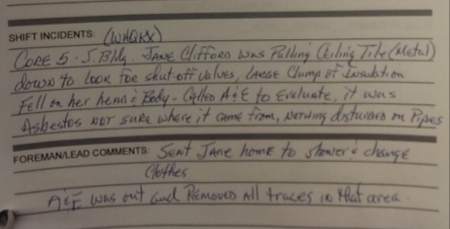 SHIFT INCIDENTS: (WHQKX)
CORE 5 - S. Bldg. JANE Clifford was Pulling Ceiling Tile (Metal)
down to look for shut-off valves, Large Clump of Insulation
Fell on her head & Body - Called A&E to Evaluate, it was
Asbestos not sure where it came from, nothing disturbed on Pipes
FOREMAN/LEAD COMMENTS: Sent Jane home to shower & change
Clothes
A&E was out and Removed All traces in that area.